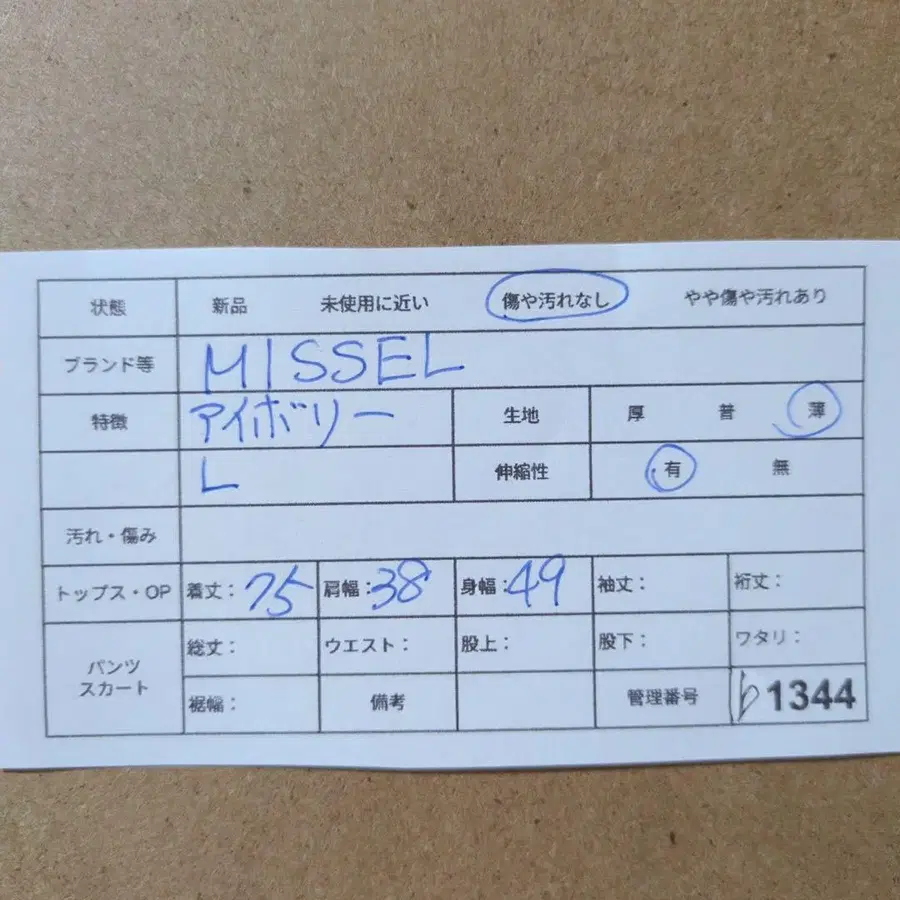 状態 新品 未使用に近い 傷や汚れなし やや傷や汚れあり
ブランド等 MISSEL
特徴 アイボリー 生地 厚 普 薄
L 伸縮性 有 無
汚れ・傷み
トップス・OP 着丈：75 肩幅：38 身幅：49 袖丈： 裄丈：
パンツ スカート 総丈： ウエスト： 股上： 股下： ワタリ：
裾幅： 備考 管理番号 b1344